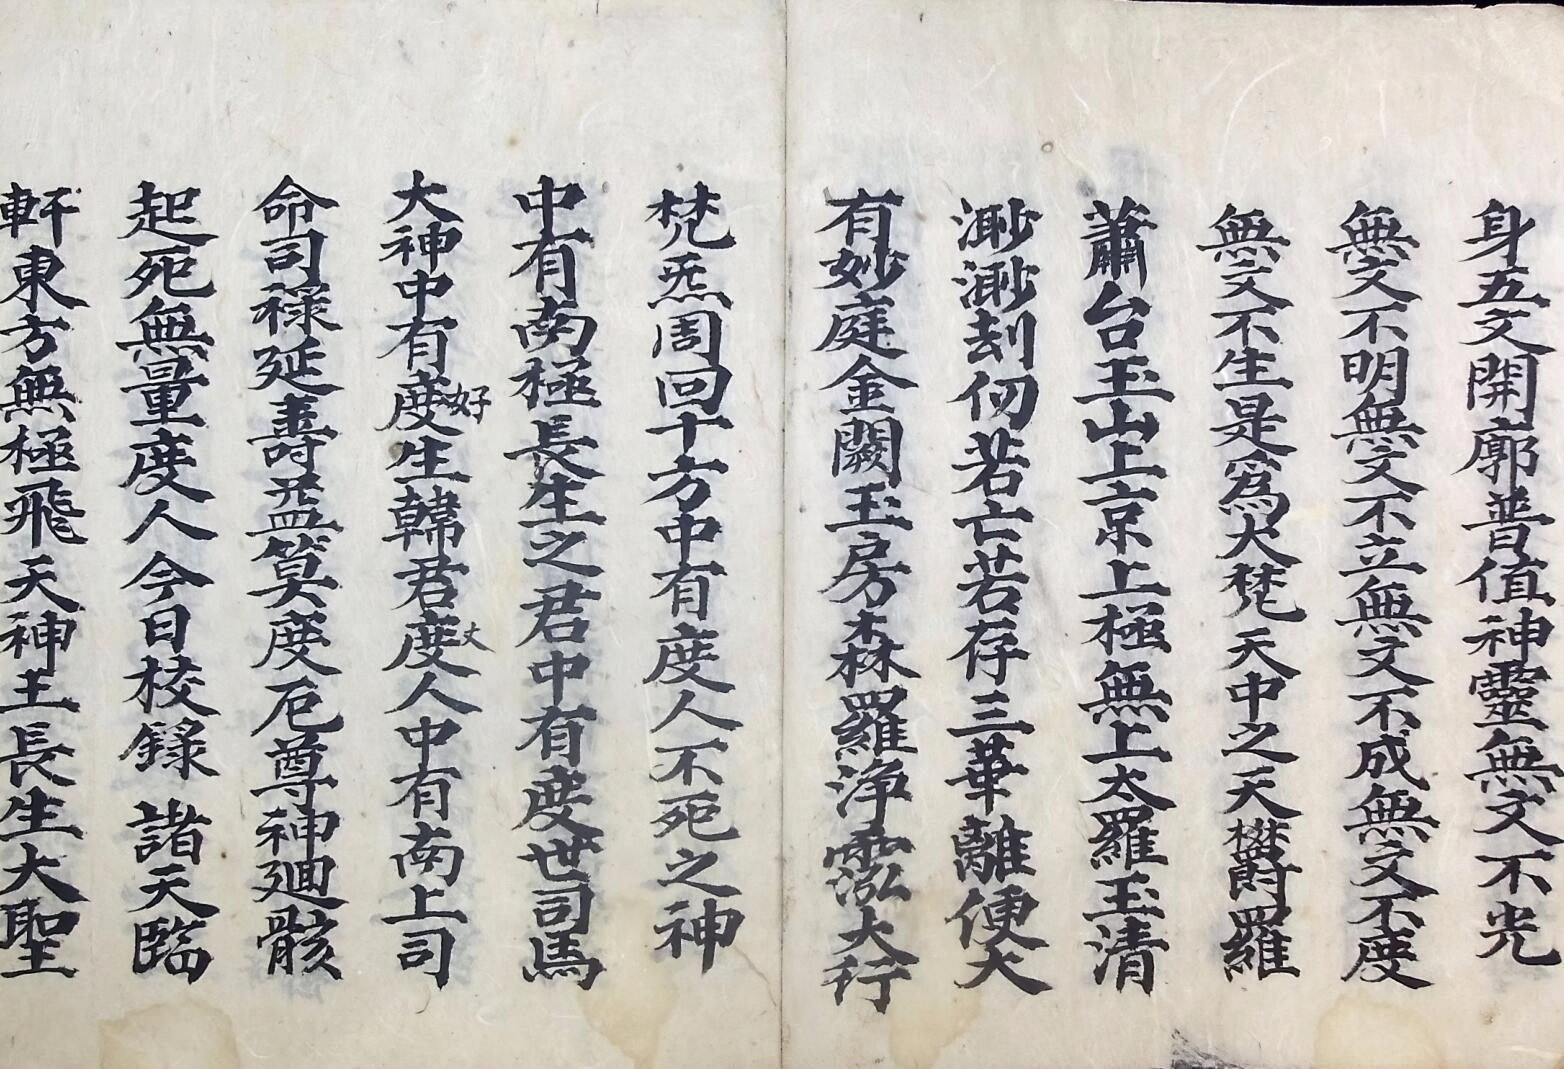 身五文開廓普值神靈無文不光
無文不明無文不立無文不成無文不度
無文不生是為大梵天中之天欝羅
蕭台玉山上京上極無上大羅玉清
渺渺刼仞若亡若存三華離便大
有妙庭金闕玉房森羅淨泓大行
梵炁周回十方中有度人不死之神
中有南極長生之君中有度世司馬
大神中有度好生韓君度丈人中有南上司
命司祿延壽益筭度厄尊神廻骸
起死無量度人今日校錄諸天臨
軒東方無極飛天神王長生大聖